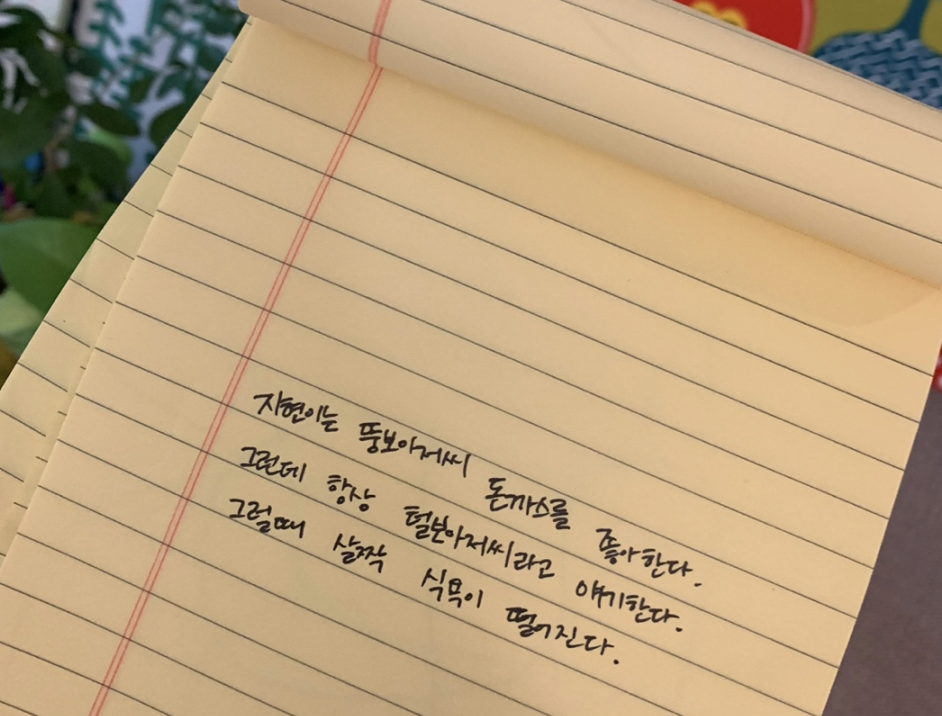 지현이는 뚱보아저씨 돈까스를 좋아한다.
그런데 항상 털보아저씨라고 얘기한다.
그럴때 살짝 식욕이 떨어진다.